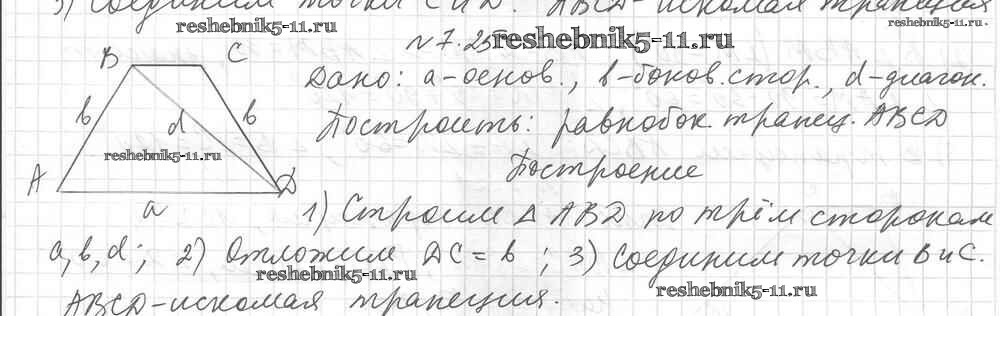 3) Соединим точки C и D. ABCD - искомая трапеция
reshebnik5-11.ru
reshebnik5-11.ru
N 7.25
reshebnik5-11.ru
B C
Дано: a - основ., b - боков. стор., d - диагон.
b d b
Построить: равнобок. трапец. ABCD
reshebnik5-11.ru
Построение
A D
a
1) Строим Δ ABD по трём сторонам
a, b, d; 2) Отложим DC = b; 3) Соединим точки B и C.
reshebnik5-11.ru
reshebnik5-11.ru
ABCD - искомая трапеция.